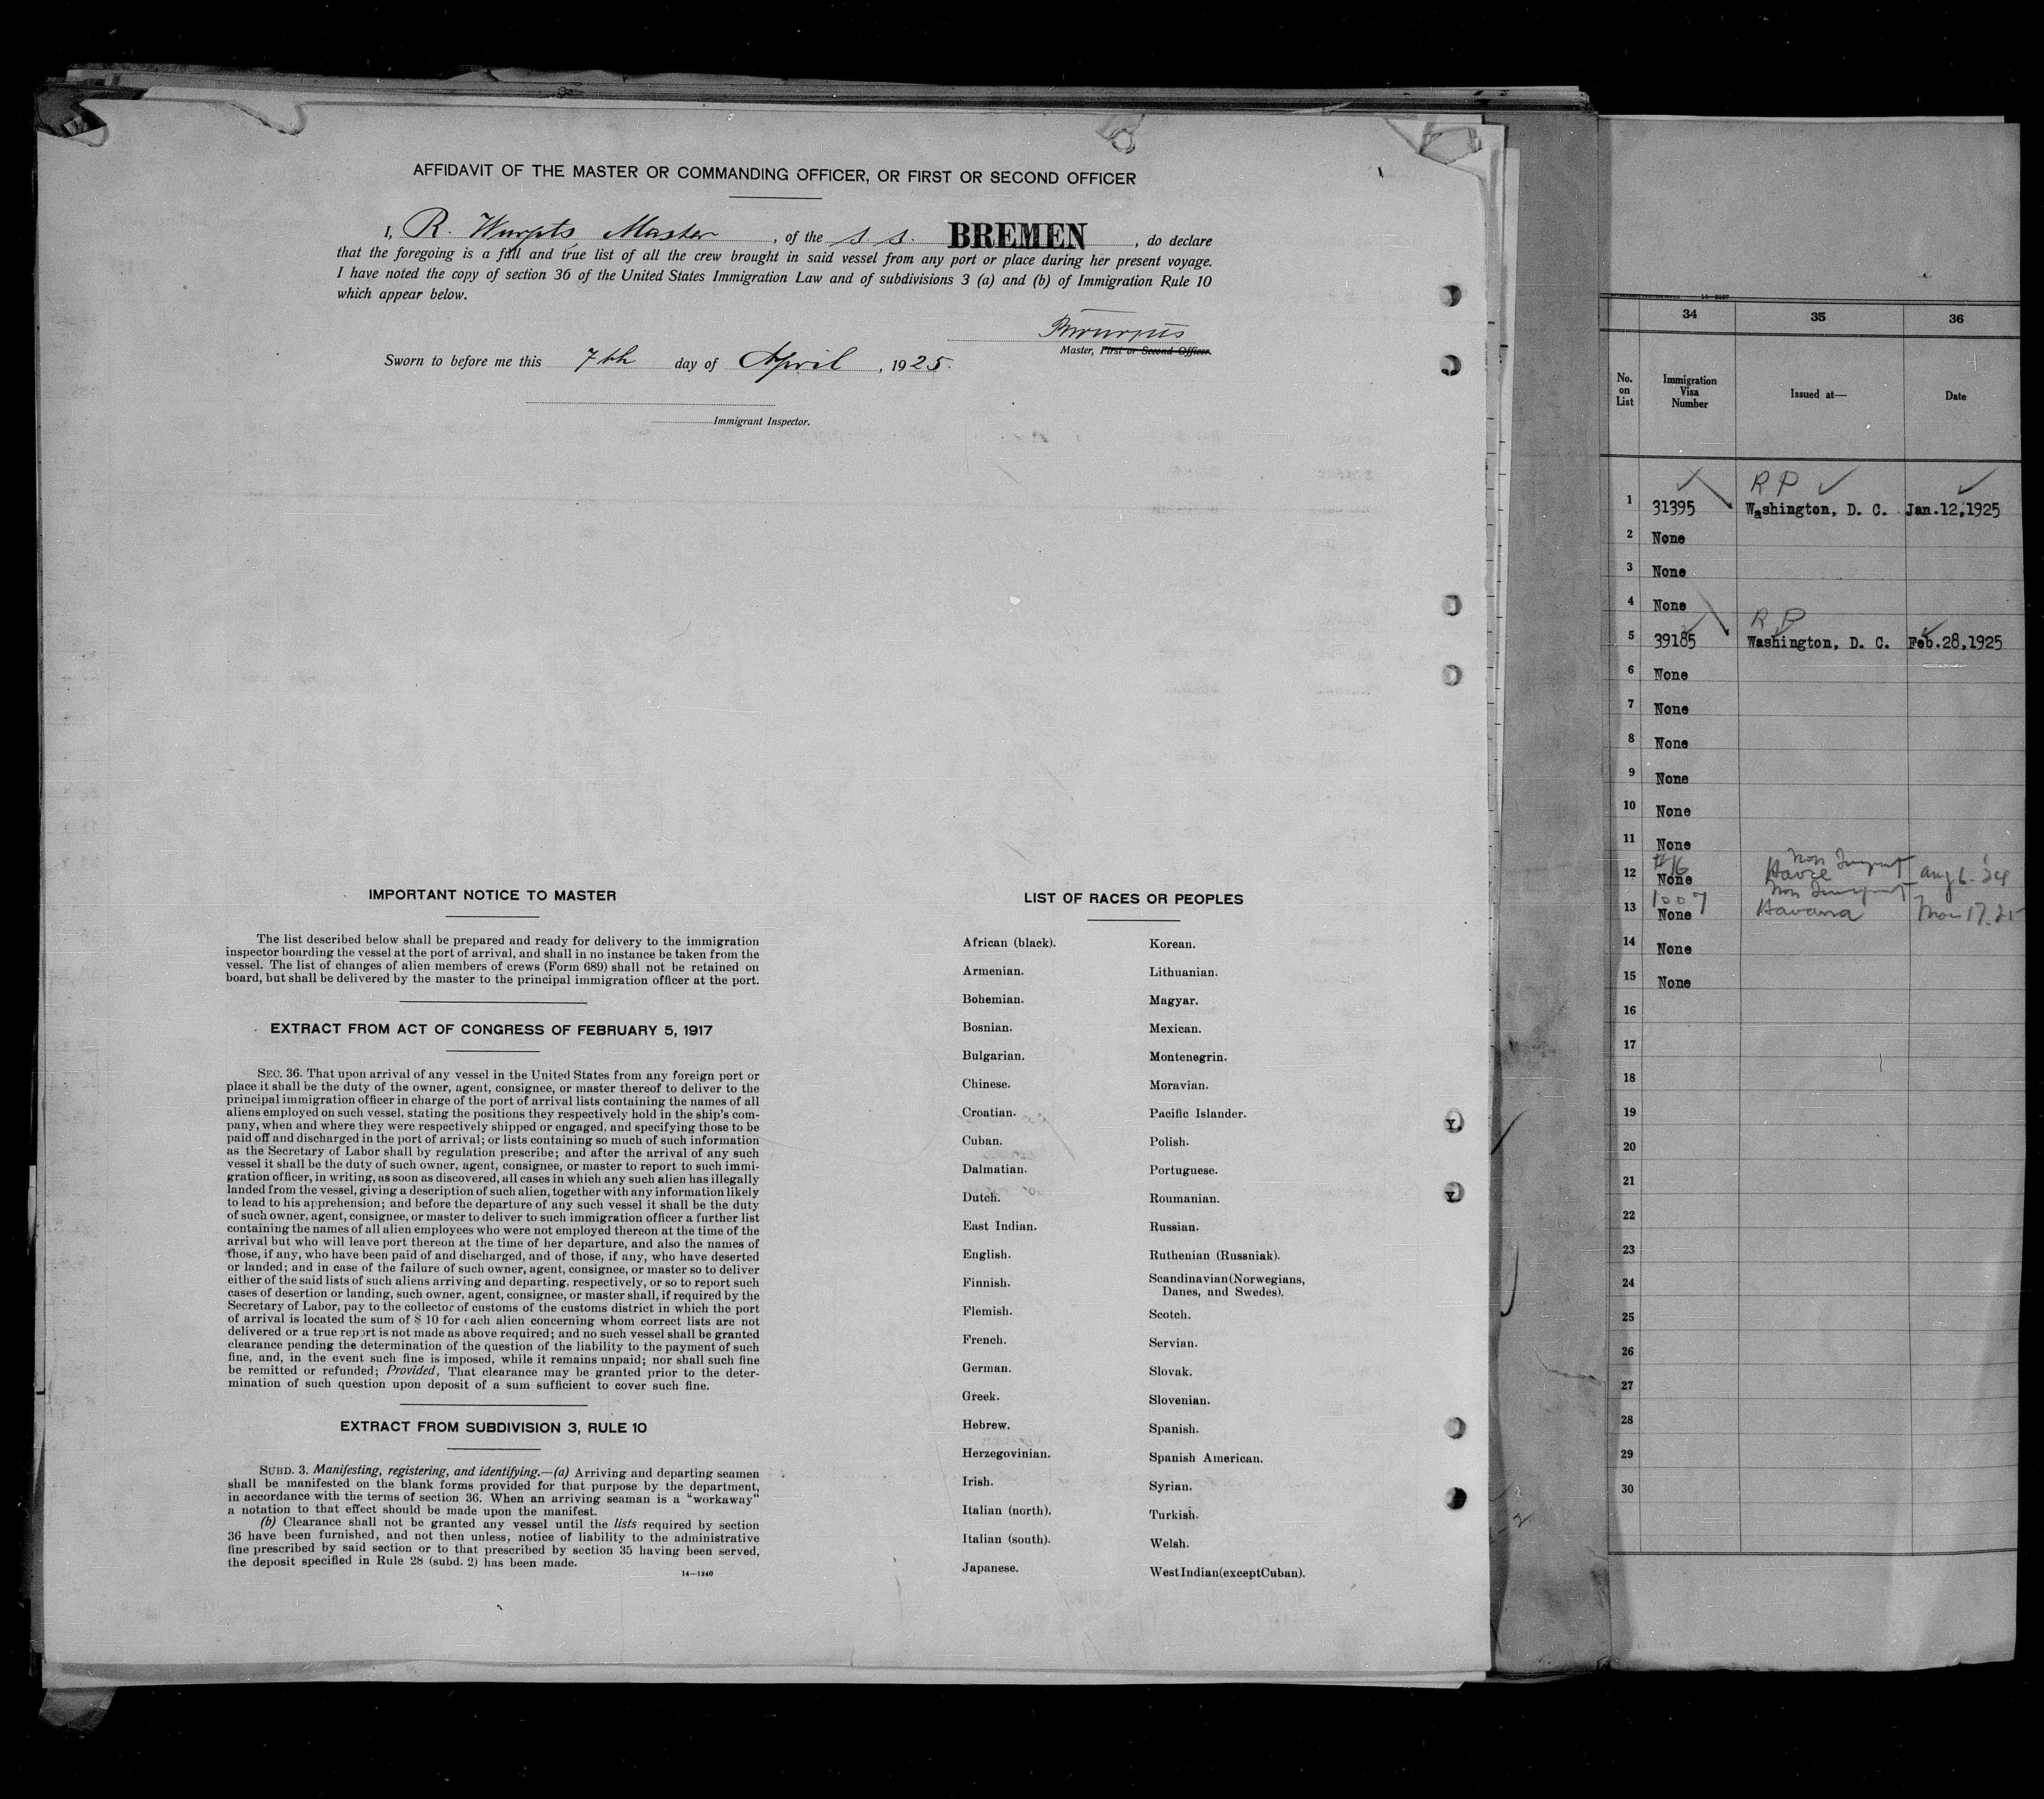 AFFIDAVIT OF THE MASTER OR COMMANDING OFFICER, OR FIRST OR SECOND OFFICER
I, R. Wurpts Master, of the s s. BREMEN, do declare
that the foregoing is a full and true list of all the crew brought in said vessel from any port or place during her present voyage.
I have noted the copy of section 36 of the United States Immigration Law and of subdivisions 3 (a) and (b) of Immigration Rule 10
which appear below.
Master, First or Second Officer.
Sworn to before me this 7th day of April, 1925.
Immigrant Inspector.
IMPORTANT NOTICE TO MASTER
The list described below shall be prepared and ready for delivery to the immigration
inspector boarding the vessel at the port of arrival, and shall in no instance be taken from the
vessel. The list of changes of alien members of crews (Form 689) shall not be retained on
board, but shall be delivered by the master to the principal immigration officer at the port.
EXTRACT FROM ACT OF CONGRESS OF FEBRUARY 5, 1917
SEC. 36. That upon arrival of any vessel in the United States from any foreign port or
place it shall be the duty of the owner, agent, consignee, or master thereof to deliver to the
principal immigration officer in charge of the port of arrival lists containing the names of all
aliens employed on such vessel, stating the positions they respectively hold in the ship's com-
pany, when and where they were respectively shipped or engaged, and specifying those to be
paid off and discharged in the port of arrival; or lists containing so much of such information
as the Secretary of Labor shall by regulation prescribe; and after the arrival of any such
vessel it shall be the duty of such owner, agent, consignee, or master to report to such immi-
gration officer, in writing, as soon as discovered, all cases in which any such alien has illegally
landed from the vessel, giving a description of such alien, together with any information likely
to lead to his apprehension; and before the departure of any such vessel it shall be the duty
of such owner, agent, consignee, or master to deliver to such immigration officer a further list
containing the names of all alien employees who were not employed thereon at the time of the
arrival but who will leave port thereon at the time of her departure, and also the names of
those, if any, who have been paid of and discharged, and of those, if any, who have deserted
or landed; and in case of the failure of such owner, agent, consignee, or master so to deliver
either of the said lists of such aliens arriving and departing, respectively, or so to report such
cases of desertion or landing, such owner, agent, consignee, or master shall, if required by the
Secretary of Labor, pay to the collector of customs of the customs district in which the port
of arrival is located the sum of $ 10 for each alien concerning whom correct lists are not
delivered or a true report is not made as above required; and no such vessel shall be granted
clearance pending the determination of the question of the liability to the payment of such
fine, and, in the event such fine is imposed, while it remains unpaid; nor shall such fine
be remitted or refunded; Provided, That clearance may be granted prior to the deter-
mination of such question upon deposit of a sum sufficient to cover such fine.
EXTRACT FROM SUBDIVISION 3, RULE 10
SUBD. 3. Manifesting, registering, and identifying.—(a) Arriving and departing seamen
shall be manifested on the blank forms provided for that purpose by the department,
in accordance with the terms of section 36. When an arriving seaman is a "workaway"
a notation to that effect should be made upon the manifest.
(b) Clearance shall not be granted any vessel until the lists required by section
36 have been furnished, and not then unless, notice of liability to the administrative
fine prescribed by said section or to that prescribed by section 35 having been served,
the deposit specified in Rule 28 (subd. 2) has been made.
14—1240
LIST OF RACES OR PEOPLES
African (black). Korean.
Armenian. Lithuanian.
Bohemian. Magyar.
Bosnian. Mexican.
Bulgarian. Montenegrin.
Chinese. Moravian.
Croatian. Pacific Islander.
Cuban. Polish.
Dalmatian. Portuguese.
Dutch. Roumanian.
East Indian. Russian.
English. Ruthenian (Russniak).
Finnish. Scandinavian (Norwegians,
Danes, and Swedes).
Flemish. Scotch.
French. Servian.
German. Slovak.
Greek. Slovenian.
Hebrew. Spanish.
Herzegovinian. Spanish American.
Irish. Syrian.
Italian (north). Turkish.
Italian (south). Welsh.
Japanese. West Indian (except Cuban).
34 35 36
No. on List Immigration Visa Number Issued at— Date
R P
1 31395 Washington, D. C. Jan.12,1925
2 None
3 None
4 None
R P
5 39185 Washington, D. C. Feb.28,1925
6 None
7 None
8 None
9 None
10 None
11 None
#16 Non
12 None Havre Aug 6 - 24
1007 Non
13 None Havana
14 None
15 None
16
17
18
19
20
21
22
23
24
25
26
27
28
29
30